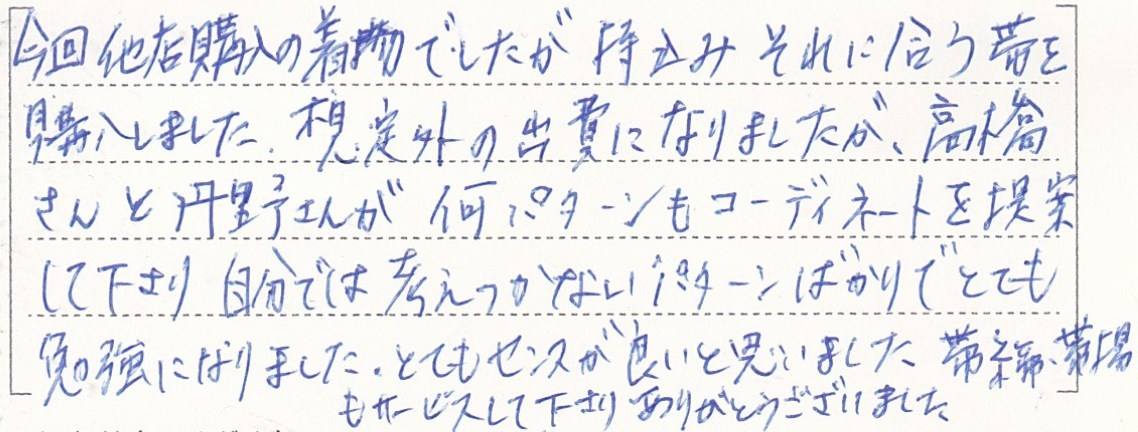 今回他店購入の着物でしたが 持込み それに合う帯を
購入しました. 想定外の出費になりましたが、高橋
さんと丹野さんが 何パターンもコーディネートを提案
して下さり 自分では考えつかないパターンばかりでとても
勉強になりました. とてもセンスが良いと思いました 帯締、帯揚
もサービスして下さり ありがとうございました